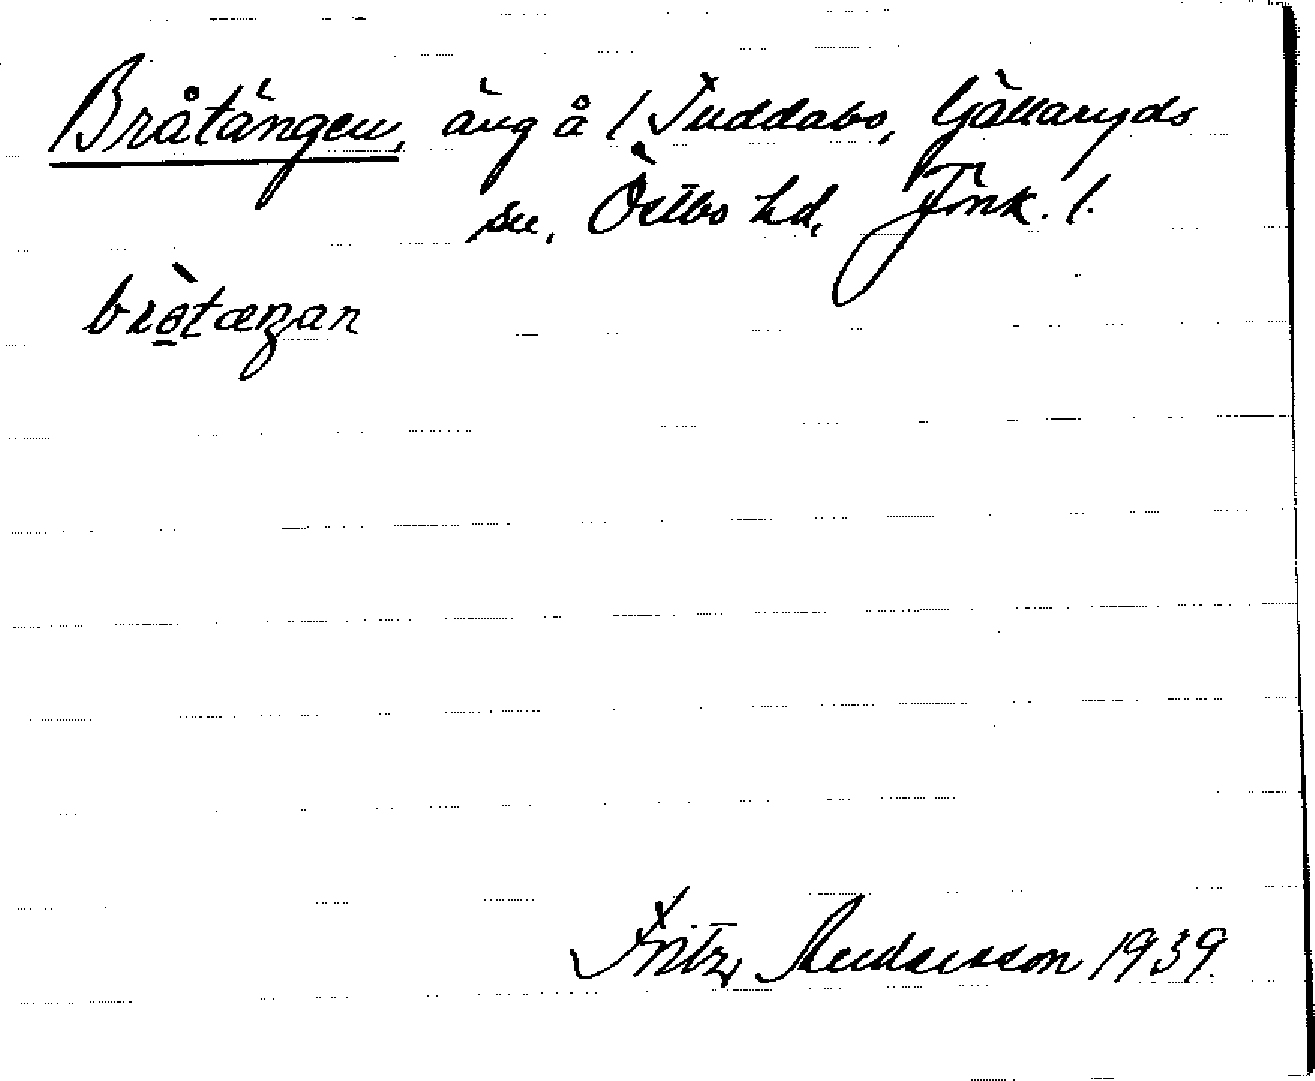 Bråtängen, äng å / Tuddabo, Gällaryds
sn. Östbo hd, Jönk. l.
bròtæŋan
Fritz Andersson 1939.